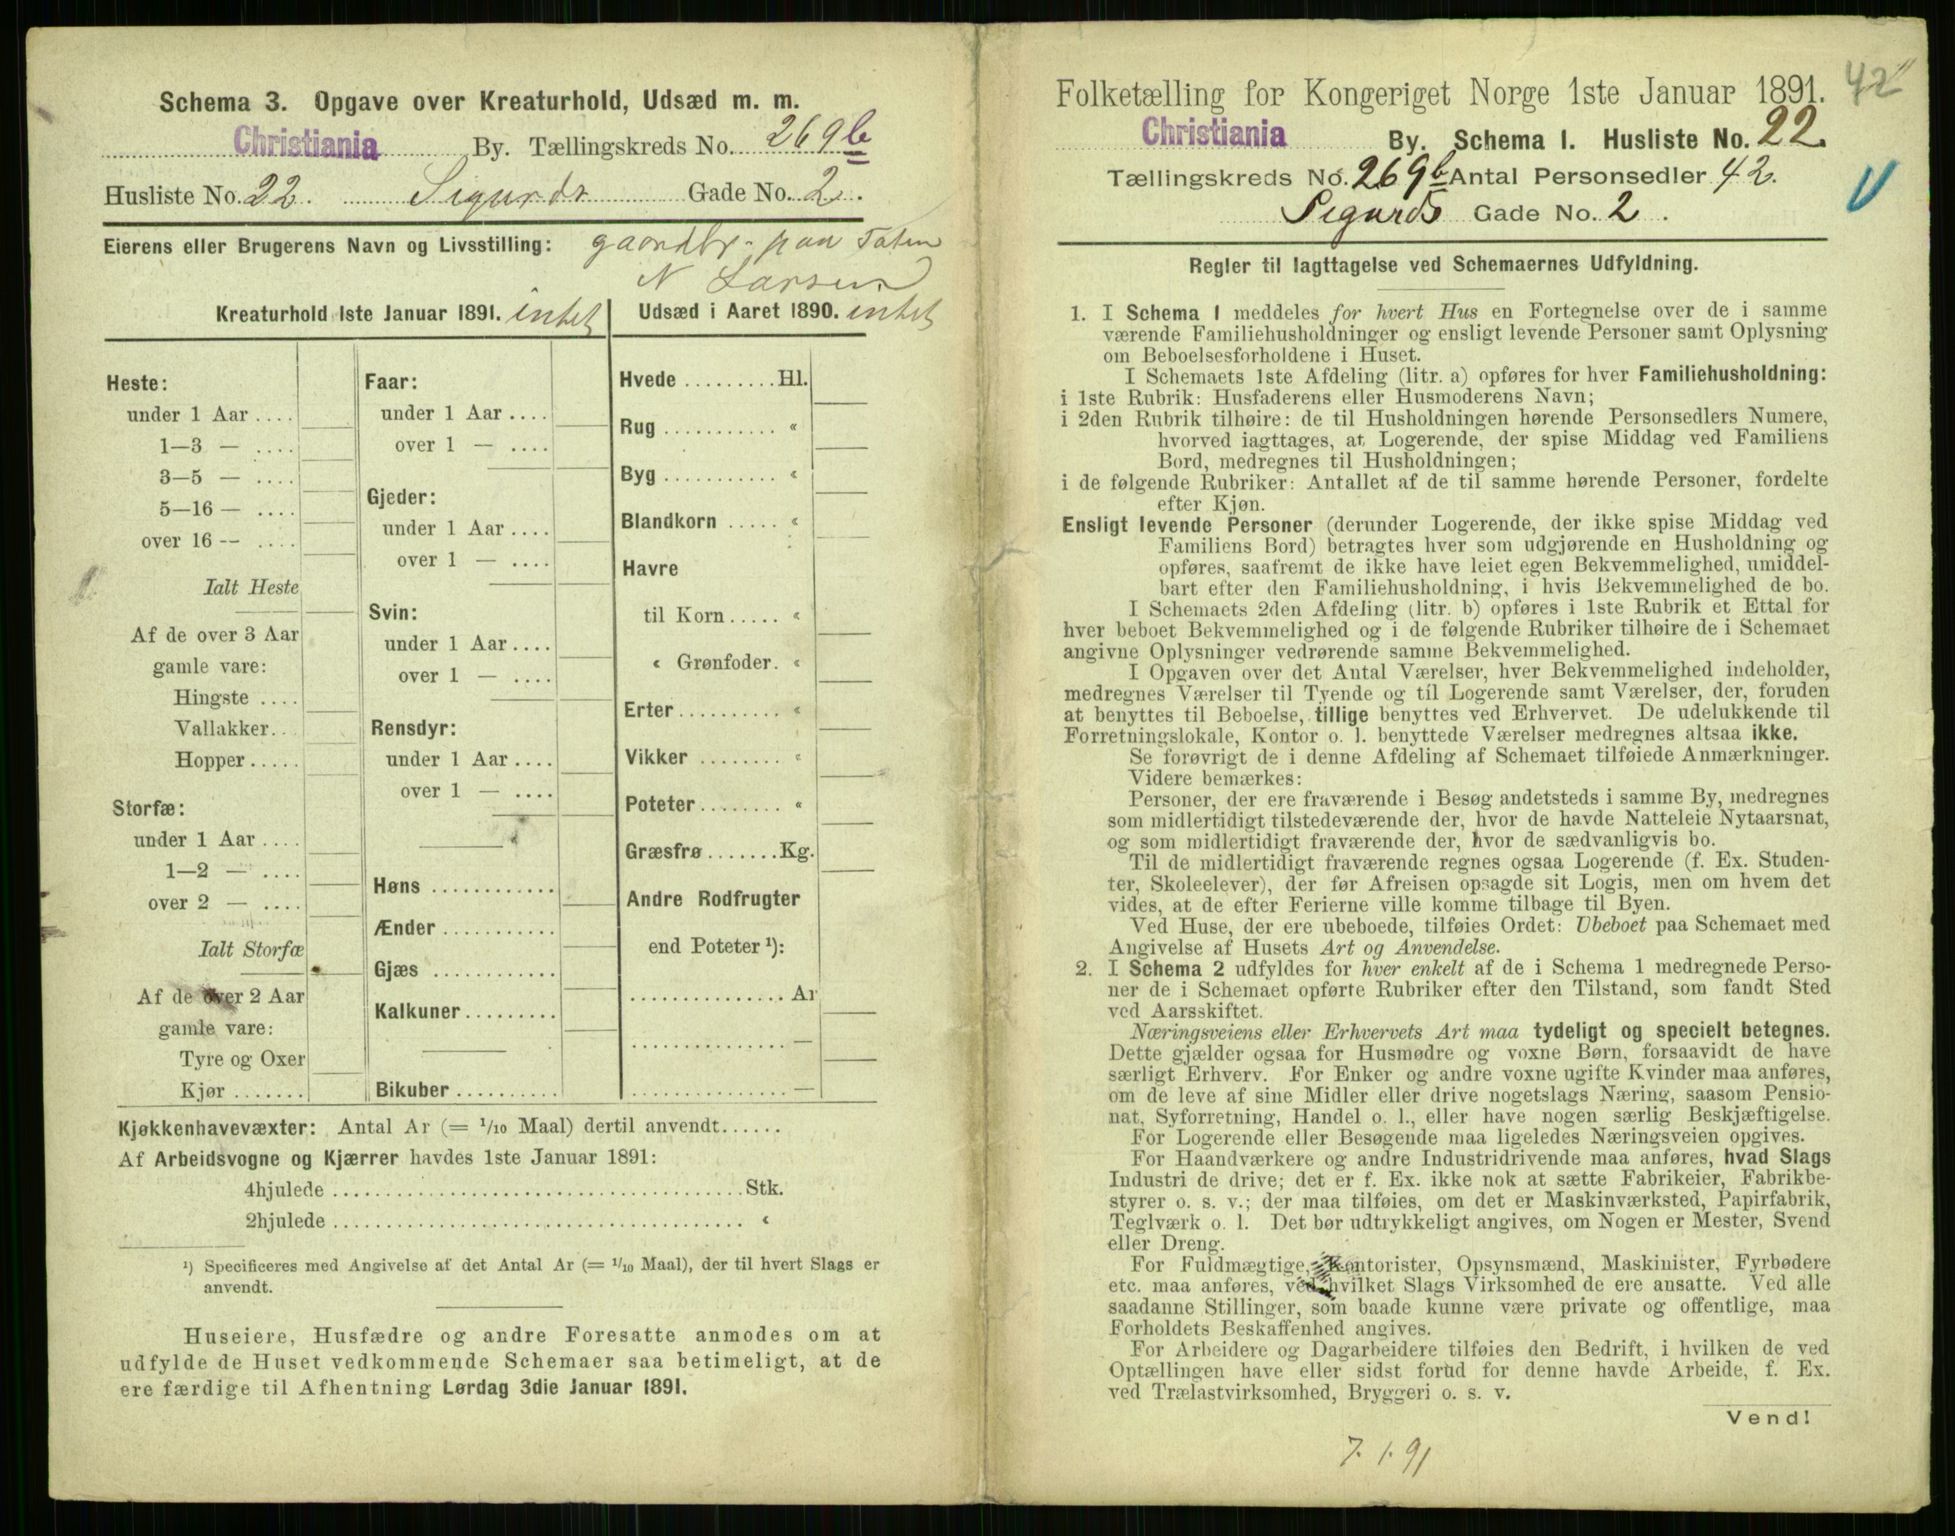 Schema 3. Opgave over Kreaturhold, Udsæd m. m.
Christiania By. Tællingskreds No. 269b
Husliste No. 22. Sigurds Gade No. 2.
Eierens eller Brugerens Navn og Livsstilling: gaardbr. paa Toten
N Larsen
Kreaturhold 1ste Januar 1891. intet
Heste:
under 1 Aar ....
1—3 — ....
3—5 — ....
5—16 — ....
over 16 -- ....
Ialt Heste
Af de over 3 Aar
gamle vare:
Hingste ....
Vallakker...
Hopper .....
Storfæ:
under 1 Aar ....
1—2 — ....
over 2 — ....
Ialt Storfæ
Af de over 2 Aar
gamle vare:
Tyre og Oxer
Kjør .......
Faar:
under 1 Aar ....
over 1 — ....
Gjeder:
under 1 Aar ....
over 1 — ....
Svin:
under 1 Aar ....
over 1 — ....
Rensdyr:
under 1 Aar ....
over 1 — ....
Høns ............
Ænder ...........
Gjæs ............
Kalkuner.........
Bikuber ..........
Udsæd i Aaret 1890. intet
Hvede .........Hl.
Rug ........... «
Byg ........... «
Blandkorn ..... «
Havre
til Korn ..... «
« Grønfoder. «
Erter .......... «
Vikker ........ «
Poteter ........ «
Græsfrø .......Kg.
Andre Rodfrugter
end Poteter ¹):
............... Ar
............... —
............... —
Kjøkkenhavevæxter: Antal Ar (= 1/10 Maal) dertil anvendt......
Af Arbeidsvogne og Kjærrer havdes 1ste Januar 1891:
4hjulede ......................................Stk.
2hjulede ...................................... «
¹) Specificeres med Angivelse af det Antal Ar (= 1/10 Maal), der til hvert Slags er
anvendt.
Huseiere, Husfædre og andre Foresatte anmodes om at
udfylde de Huset vedkommende Schemaer saa betimeligt, at de
ere færdige til Afhentning Lørdag 3die Januar 1891.
Folketælling for Kongeriget Norge 1ste Januar 1891. 42
Christiania By. Schema I. Husliste No. 22.
Tællingskreds No. 269b Antal Personsedler 42.
Sigurds Gade No. 2.
Regler til Iagttagelse ved Schemaernes Udfyldning.
1. I Schema 1 meddeles for hvert Hus en Fortegnelse over de i samme
værende Familiehusholdninger og ensligt levende Personer samt Oplysning
om Beboelsesforholdene i Huset.
I Schemaets 1ste Afdeling (litr. a) opføres for hver Familiehusholdning:
i 1ste Rubrik: Husfaderens eller Husmoderens Navn;
i 2den Rubrik tilhøire: de til Husholdningen hørende Personsedlers Numere,
hvorved iagttages, at Logerende, der spise Middag ved Familiens
Bord, medregnes til Husholdningen;
i de følgende Rubriker: Antallet af de til samme hørende Personer, fordelte
efter Kjøn.
Ensligt levende Personer (derunder Logerende, der ikke spise Middag ved
Familiens Bord) betragtes hver som udgjørende en Husholdning og
opføres, saafremt de ikke have leiet egen Bekvemmelighed, umiddel-
bart efter den Familiehusholdning, i hvis Bekvemmelighed de bo.
I Schemaets 2den Afdeling (litr. b) opføres i 1ste Rubrik et Ettal for
hver beboet Bekvemmelighed og i de følgende Rubriker tilhøire de i Schemaet
angivne Oplysninger vedrørende samme Bekvemmelighed.
I Opgaven over det Antal Værelser, hver Bekvemmelighed indeholder,
medregnes Værelser til Tyende og til Logerende samt Værelser, der, foruden
at benyttes til Beboelse, tillige benyttes ved Erhvervet. De udelukkende til
Forretningslokale, Kontor o. l. benyttede Værelser medregnes altsaa ikke.
Se forøvrigt de i denne Afdeling af Schemaet tilføiede Anmærkninger.
Videre bemærkes:
Personer, der ere fraværende i Besøg andetsteds i samme By, medregnes
som midlertidigt tilstedeværende der, hvor de havde Natteleie Nytaarsnat,
og som midlertidigt fraværende der, hvor de sædvanligvis bo.
Til de midlertidigt fraværende regnes ogsaa Logerende (f. Ex. Studen-
ter, Skoleelever), der før Afreisen opsagde sit Logis, men om hvem det
vides, at de efter Ferierne ville komme tilbage til Byen.
Ved Huse, der ere ubeboede, tilføies Ordet: Ubeboet paa Schemaet med
Angivelse af Husets Art og Anvendelse.
2. I Schema 2 udfyldes for hver enkelt af de i Schema 1 medregnede Perso-
ner de i Schemaet opførte Rubriker efter den Tilstand, som fandt Sted
ved Aarsskiftet.
Næringsveiens eller Erhvervets Art maa tydeligt og specielt betegnes.
Dette gjælder ogsaa for Husmødre og voxne Børn, forsaavidt de have
særligt Erhverv. For Enker og andre voxne ugifte Kvinder maa anføres,
om de leve af sine Midler eller drive nogetslags Næring, saasom Pensio-
nat, Syforretning, Handel o. l., eller have nogen særlig Beskjæftigelse.
For Logerende eller Besøgende maa ligeledes Næringsveien opgives.
For Haandværkere og andre Industridrivende maa anføres, hvad Slags
Industri de drive; det er f. Ex. ikke nok at sætte Fabrikeier, Fabrikbe-
styrer o. s. v.; der maa tilføies, om det er Maskinværksted, Papirfabrik,
Teglværk o. l. Det bør udtrykkeligt angives, om Nogen er Mester, Svend
eller Dreng.
For Fuldmægtige, Kontorister, Opsynsmænd, Maskinister, Fyrbødere
etc. maa anføres, ved hvilket Slags Virksomhed de ere ansatte. Ved alle
saadanne Stillinger, som baade kunne være private og offentlige, maa
Forholdets Beskaffenhed angives.
For Arbeidere og Dagarbeidere tilføies den Bedrift, i hvilken de ved
Optællingen have eller sidst forud for denne havde Arbeide, f. Ex.
ved Trælastvirksomhed, Bryggeri o. s. v.
Vend!
7. 1. 91